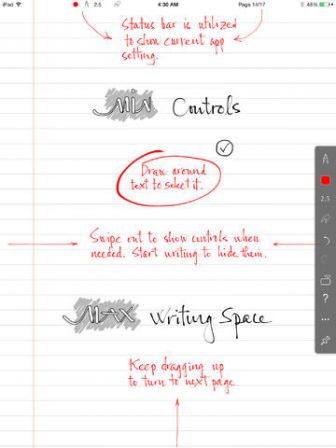 iPad 2.5 4:30 AM Page 14/17 48%
Status bar is utilized
to show current app
setting.
MIN Controls
Draw around
text to select it.
A
2.5
Swipe out to show controls when
needed. Start writing to hide them.
?
MAX Writing Space
Keep dragging up
to turn to next page